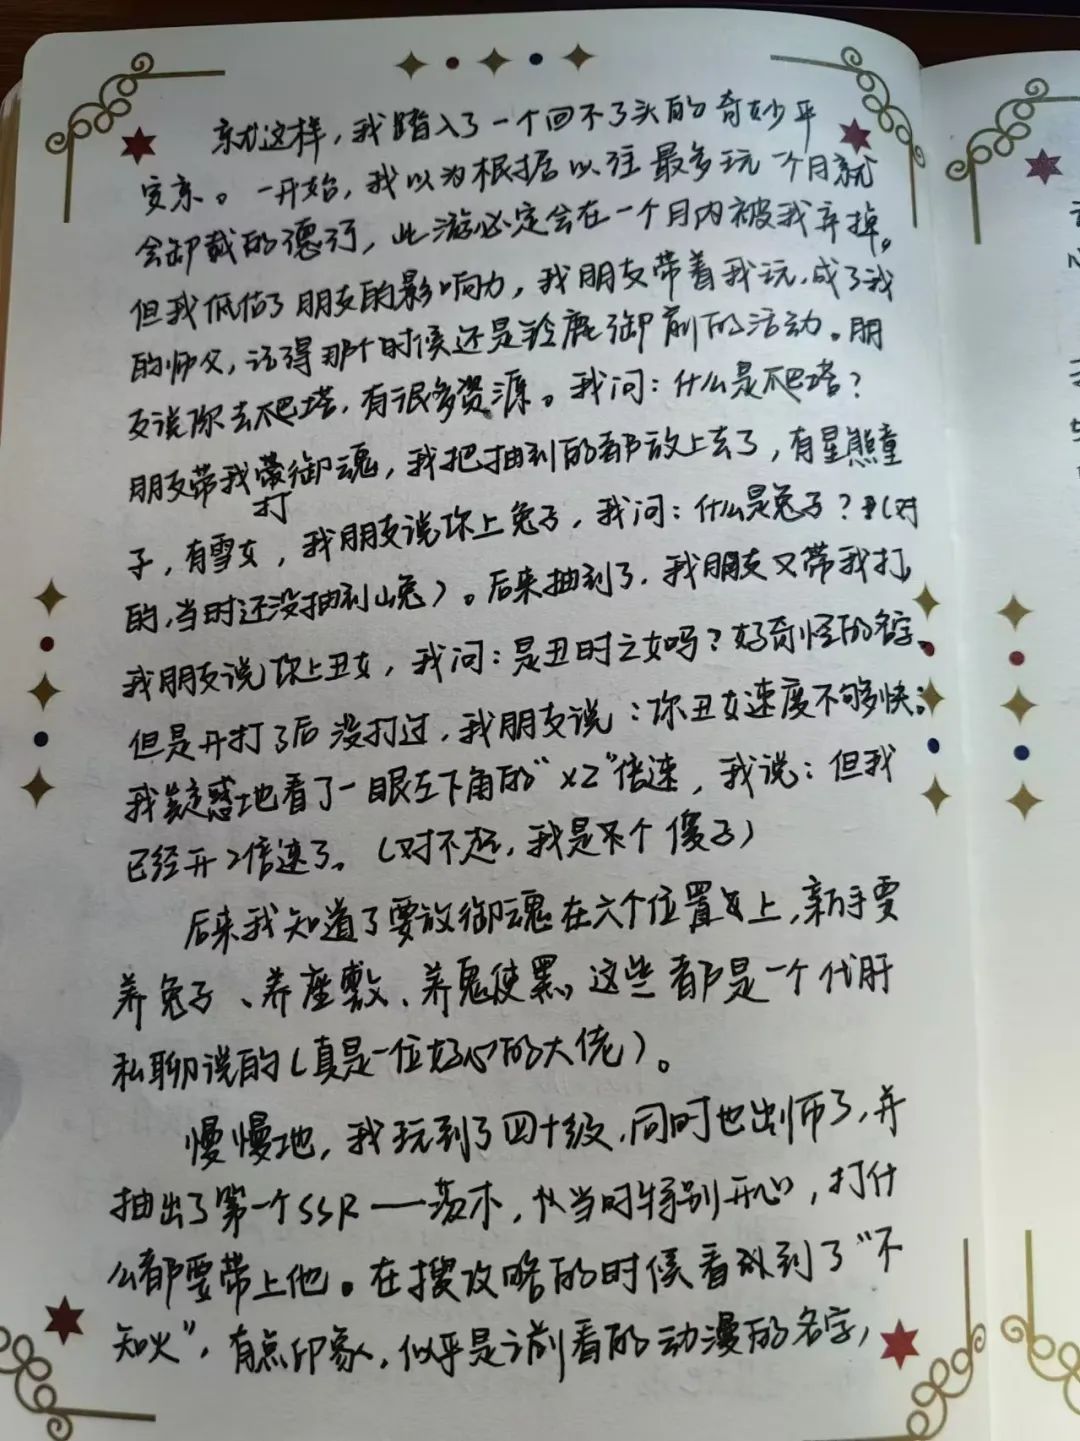 就这样，我踏入了一个回不了头的奇妙平
安京。一开始，我以为根据以往最多玩一个月就
会卸载的德行，此游必定会在一个月内被我弃掉。
但我低估了朋友的影响力，我朋友带着我玩，成了我
的师父，记得那个时候还是铃鹿御前的活动。朋
友说你去爬塔，有很多资源。我问：什么是爬塔？
朋友带我打御魂，我把抽到的都放上去了，有星熊童
子，有雪女，我朋友说你上兔子，我问：什么是兔子？（对
的，当时还没抽到山兔）。后来抽到了，我朋友又带我打，
我朋友说你上丑女，我问：是丑时之女吗？好奇怪的名字。
但是开打了后没打过，我朋友说：你丑女速度不够快。
我疑惑地看了一眼左下角的“x2”倍速，我说：但我
已经开2倍速了。（对不起，我是个傻子）
后来我知道了要放御魂在六个位置上，新手要
养兔子、养座敷、养鬼使黑，这些都是一个代肝
私聊说的（真是一位好心的大佬）。
慢慢地，我玩到了四十级，同时也出师了，并
抽出了第一个SSR——茨木，当时特别开心，打什
么都要带上他。在搜攻略的时候看到了“不
知火”，有点印象，似乎是之前看的动漫的名字，